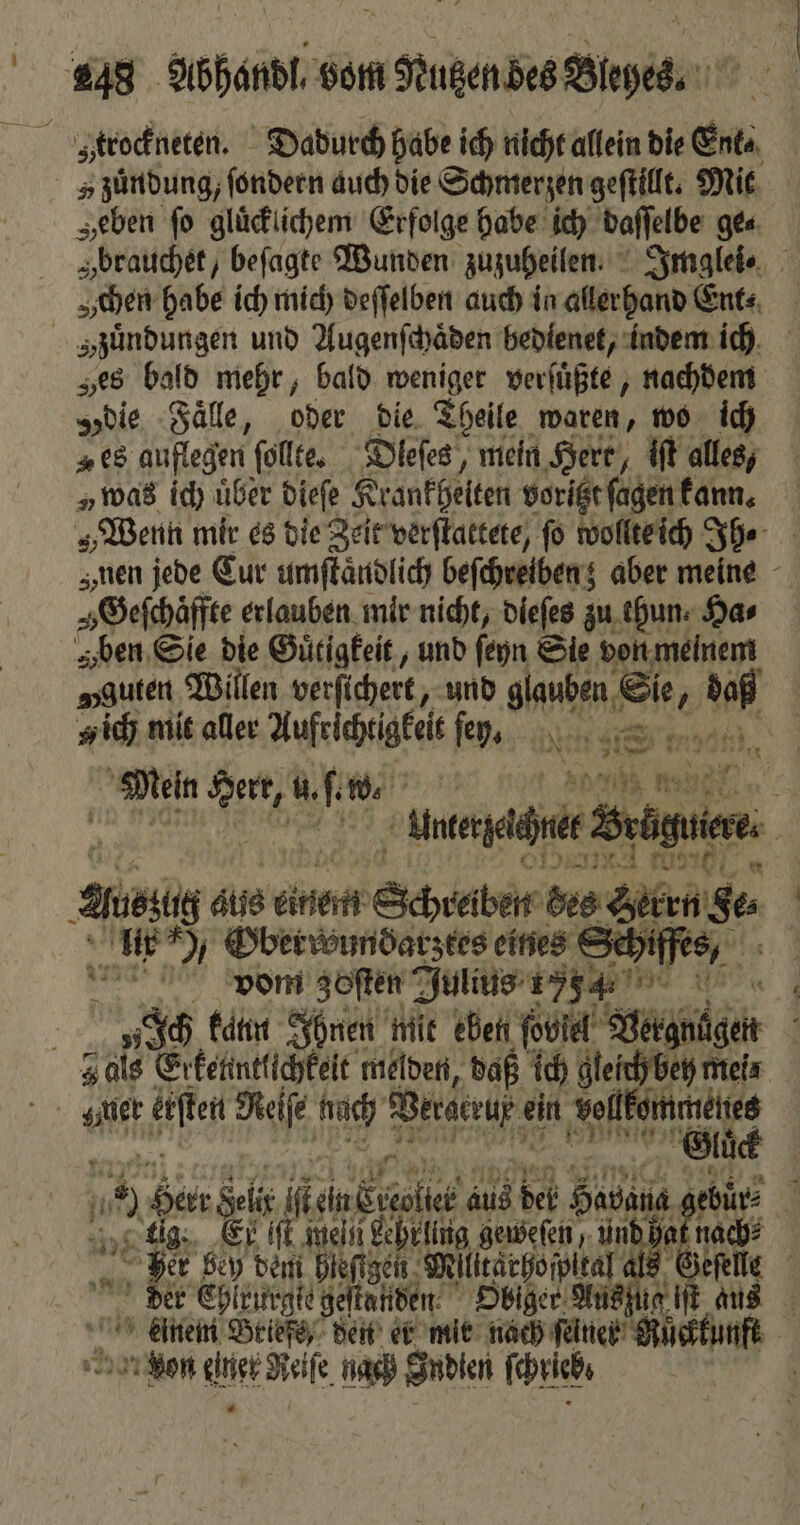 248 Abhandl. vom Nutzen des Bleyes.
„trockneten. Dadurch habe ich nicht allein die Ent⸗
„zuͤndung, ſondern auch die Schmerzen geſtillt. Mit
„eben ſo gluͤcklichem Erfolge habe ich daſſelbe ge⸗
„brauchet, beſagte Wunden zuzuheilen. Imglei⸗
„chen habe ich mich deſſelben auch in allerhand Ent⸗
„zuͤndungen und Augenſchaͤden bedienet, indem ich
„es bald mehr, bald weniger verſuͤßte, nachdem
„die Faͤlle, oder die Theile waren, wo ich
„es auflegen ſollte. Dieſes, mein Herr, iſt alles,
„was ich uͤber dieſe Krankheiten voritzt ſagen kann.
„Wenn mir es die Zeit verſtattete, ſo wollte ich Ih⸗
„nen jede Cur umſtaͤndlich beſchreiben; aber meine
„Geſchaͤffte erlauben mir nicht, dieſes zu thun. Ha⸗
„ben Sie die Guͤtigkeit, und ſeyn Sie von meinem
„guten Willen verſichert, und glauben Sie, daß
„ich mit aller Aufrichtigkeit ſey,
Mein Herr, u. ſ. w.
Unterzeichnet Bruͤguiere.
Auszug aus einem Schreiben des Herrn Fe⸗
lix *), Oberwundarztes eines Schiffes,
vom 30ſten Julius 1754.
„Ich kann Ihnen mit eben ſoviel Vergnuͤgen
„als Erkenntlichkeit melden, daß ich gleich bey mei⸗
„ner erſten Reiſe nach Veracrux ein vollkommenes
Gluͤck
*) Herr Felix iſt ein Creolier aus der Havana gebuͤr⸗
tig. Er iſt mein Lehrling geweſen, und hat nach⸗
her bey dem hieſigen Militaͤrhoſpital als Geſelle
der Chirurgie geſtanden. Obiger Auszug iſt aus
einem Briefe, den er mir nach ſeiner Ruͤckkunft
von einer Reiſe nach Indien ſchrieb.